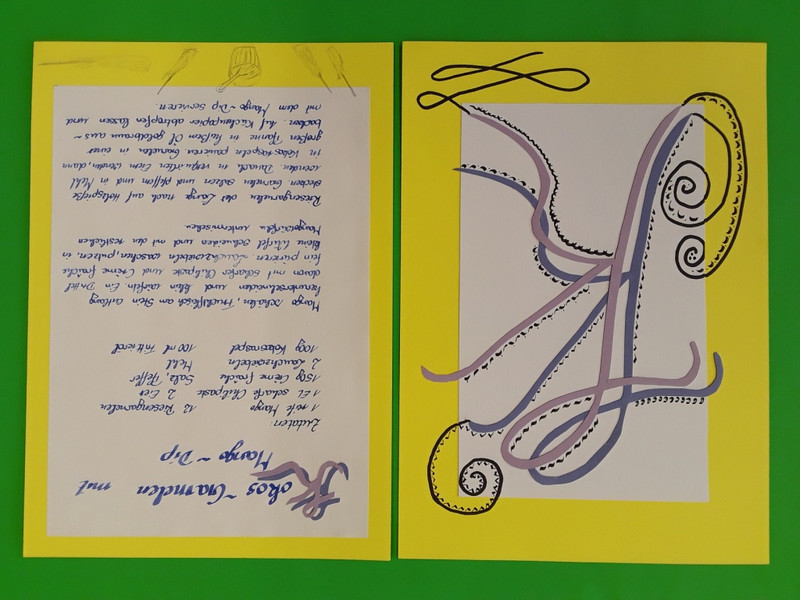 Kokos~Garnelen mit
Mango~Dip
Zutaten:
1 rote Mango 12 Riesengarnelen
1 EL scharfe Chilipaste 2 Eier
150g Crème fraîche Salz, Pfeffer
2 Lauchzwiebeln Mehl
100g Kokosraspel 100 ml Frittieröl
Mango schälen, Fruchtfleisch am Stein entlang
herunterschneiden und klein würfeln. Ein Drittel
davon mit scharfer Chilipaste und Crème fraîche
fein pürieren. Lauchzwiebeln waschen, putzen, in
kleine Würfel schneiden und mit den restlichen
Mangowürfeln untermischen.
Riesengarnelen der Länge nach auf Holzspieße
stecken. Garnelen salzen und pfeffern und in Mehl
wenden. Danach in verquirlten Eiern wenden, dann
in Kokosraspeln panieren. Garnelen in einer
großen Pfanne in heißem Öl goldbraun aus~
backen. Auf Küchenpapier abtropfen lassen und
mit dem Mango~Dip servieren.